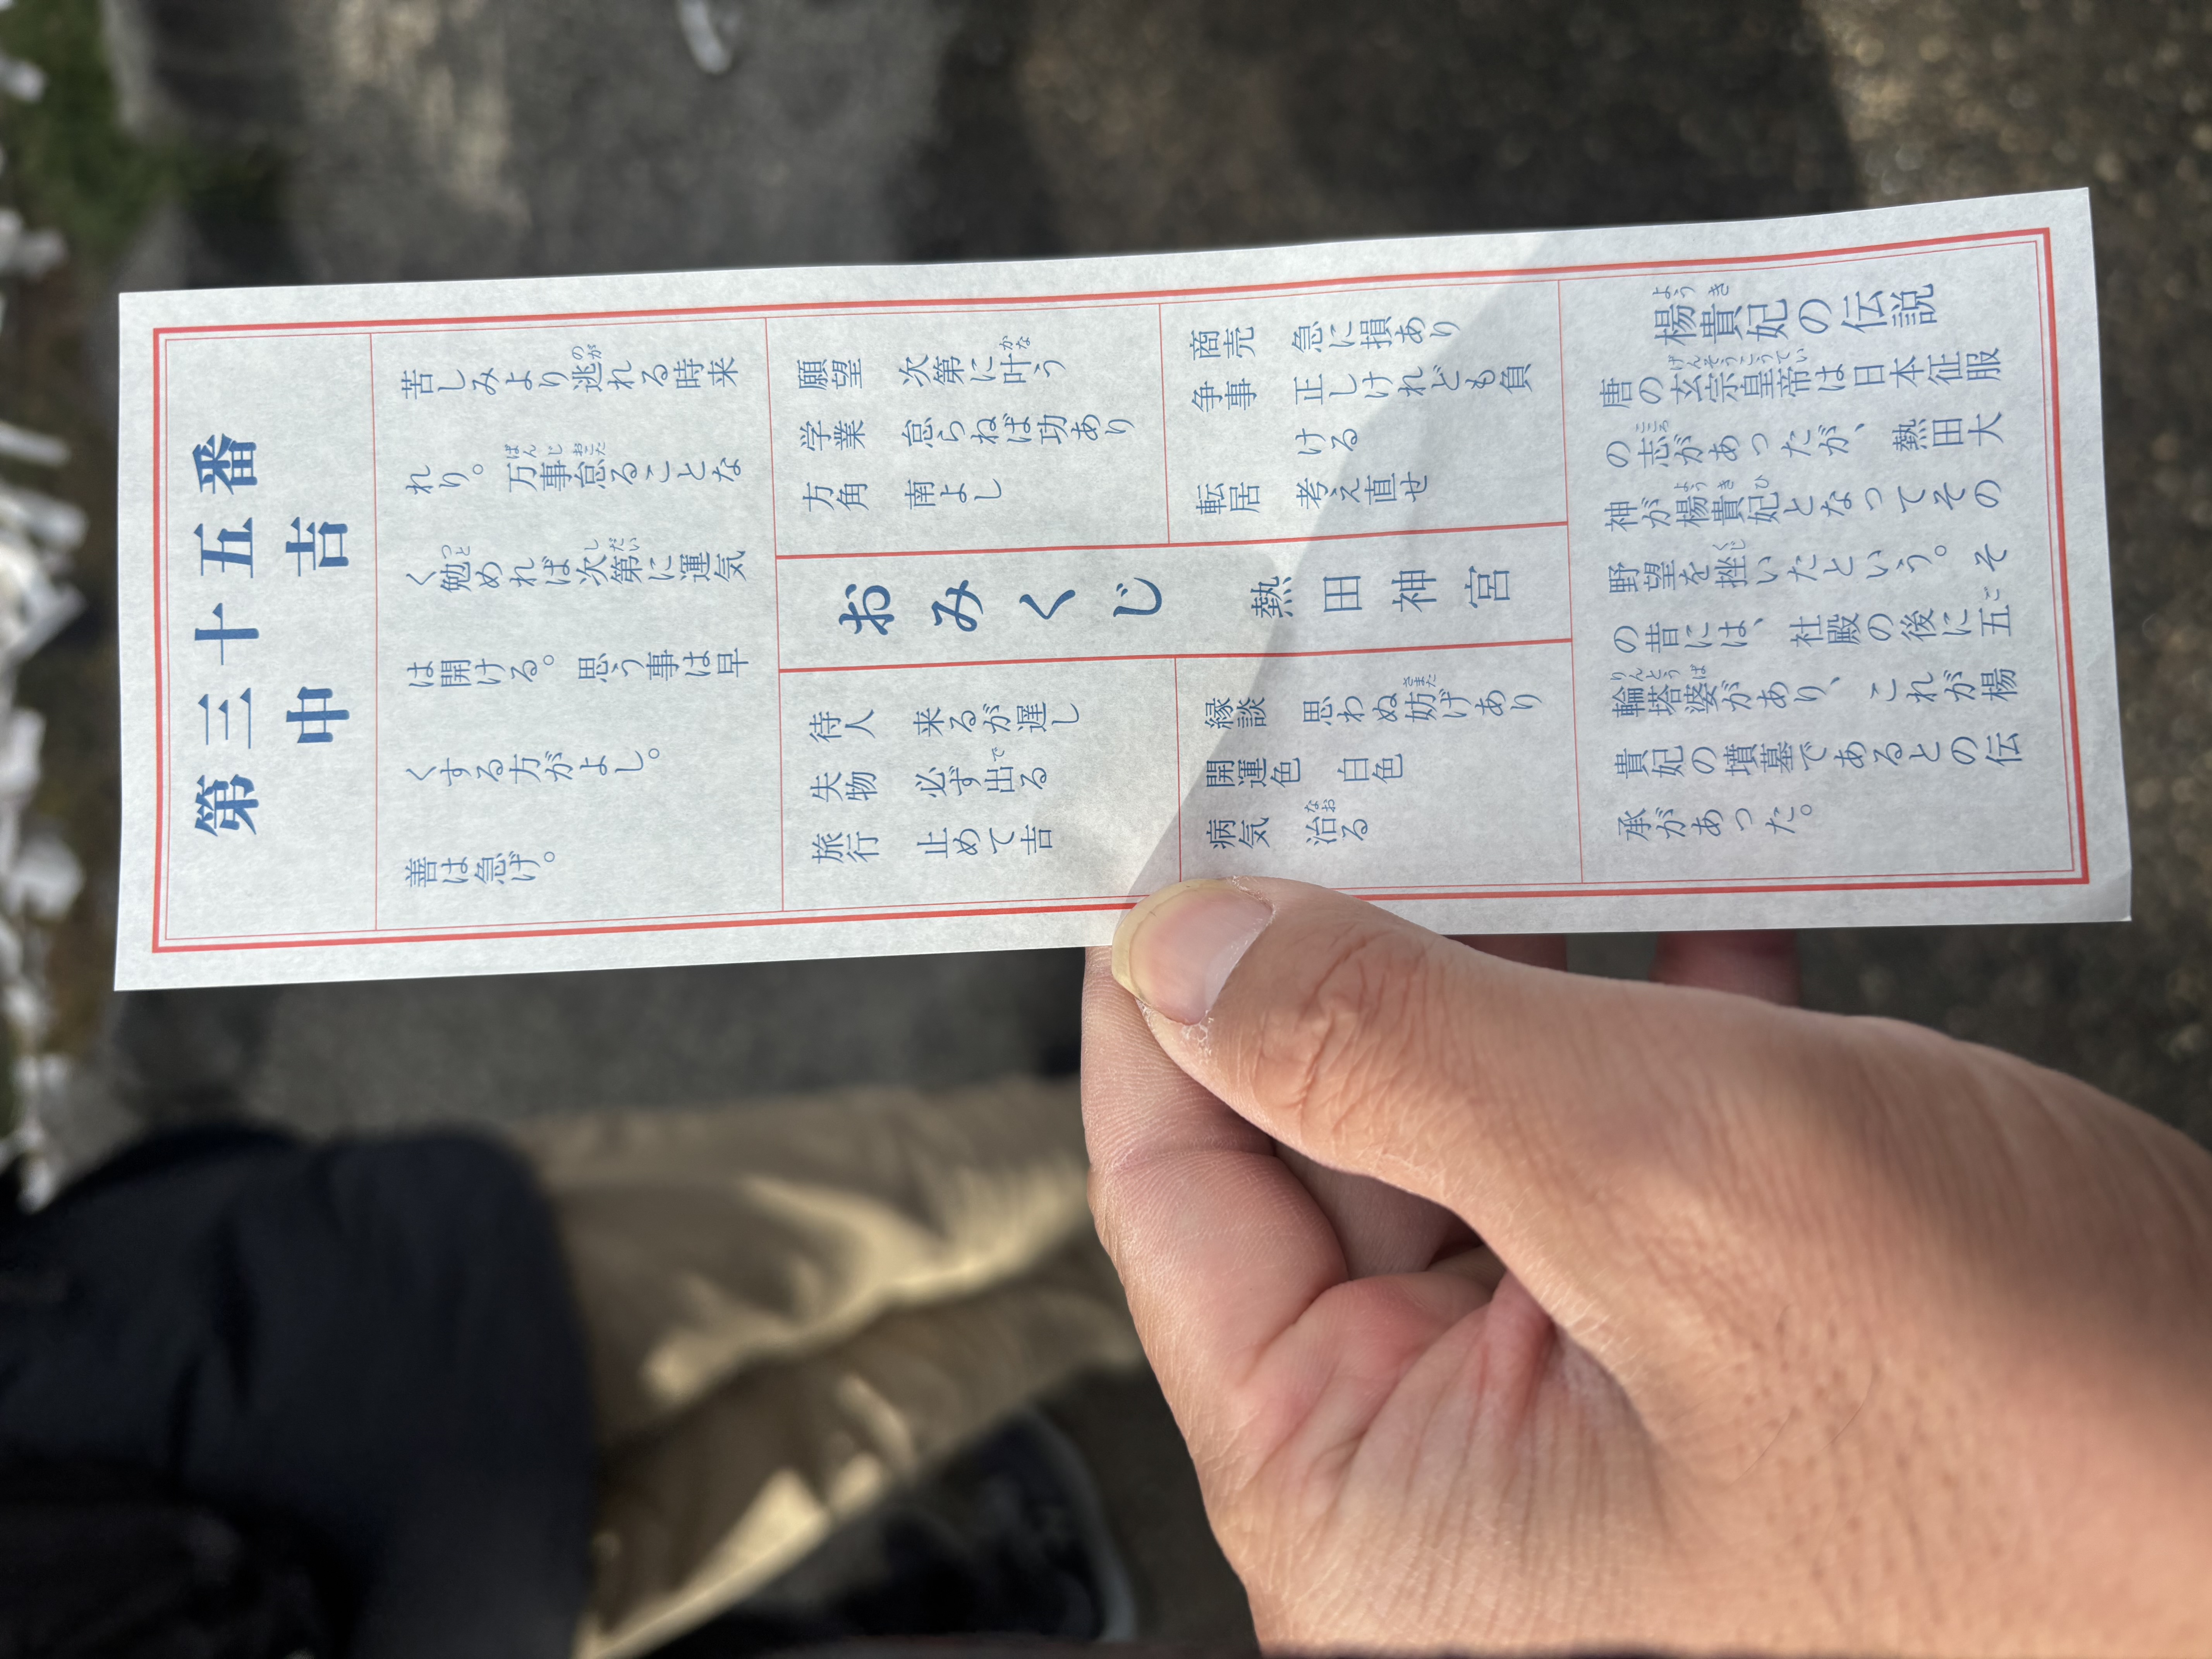 第三十五番
中吉
苦しみより逃れる時来
れり。万事怠ることな
く勉めれば次第に運気
は開ける。思う事は早
くする方がよし。
善は急げ。
願望 次第に叶う
学業 怠らねば功あり
方角 南よし
おみくじ 熱田神宮
待人 来るが遅し
失物 必ず出る
旅行 止めて吉
商売 急に損あり
争事 正しけれども負
ける
転居 考え直せ
縁談 思わぬ妨げあり
開運色 白色
病気 治る
楊貴妃の伝説
唐の玄宗皇帝は日本征服
の志があったが、熱田大
神が楊貴妃となってその
野望を挫いたという。そ
の昔には、社殿の後に五
輪塔婆があり、これが楊
貴妃の墳墓であるとの伝
承があった。